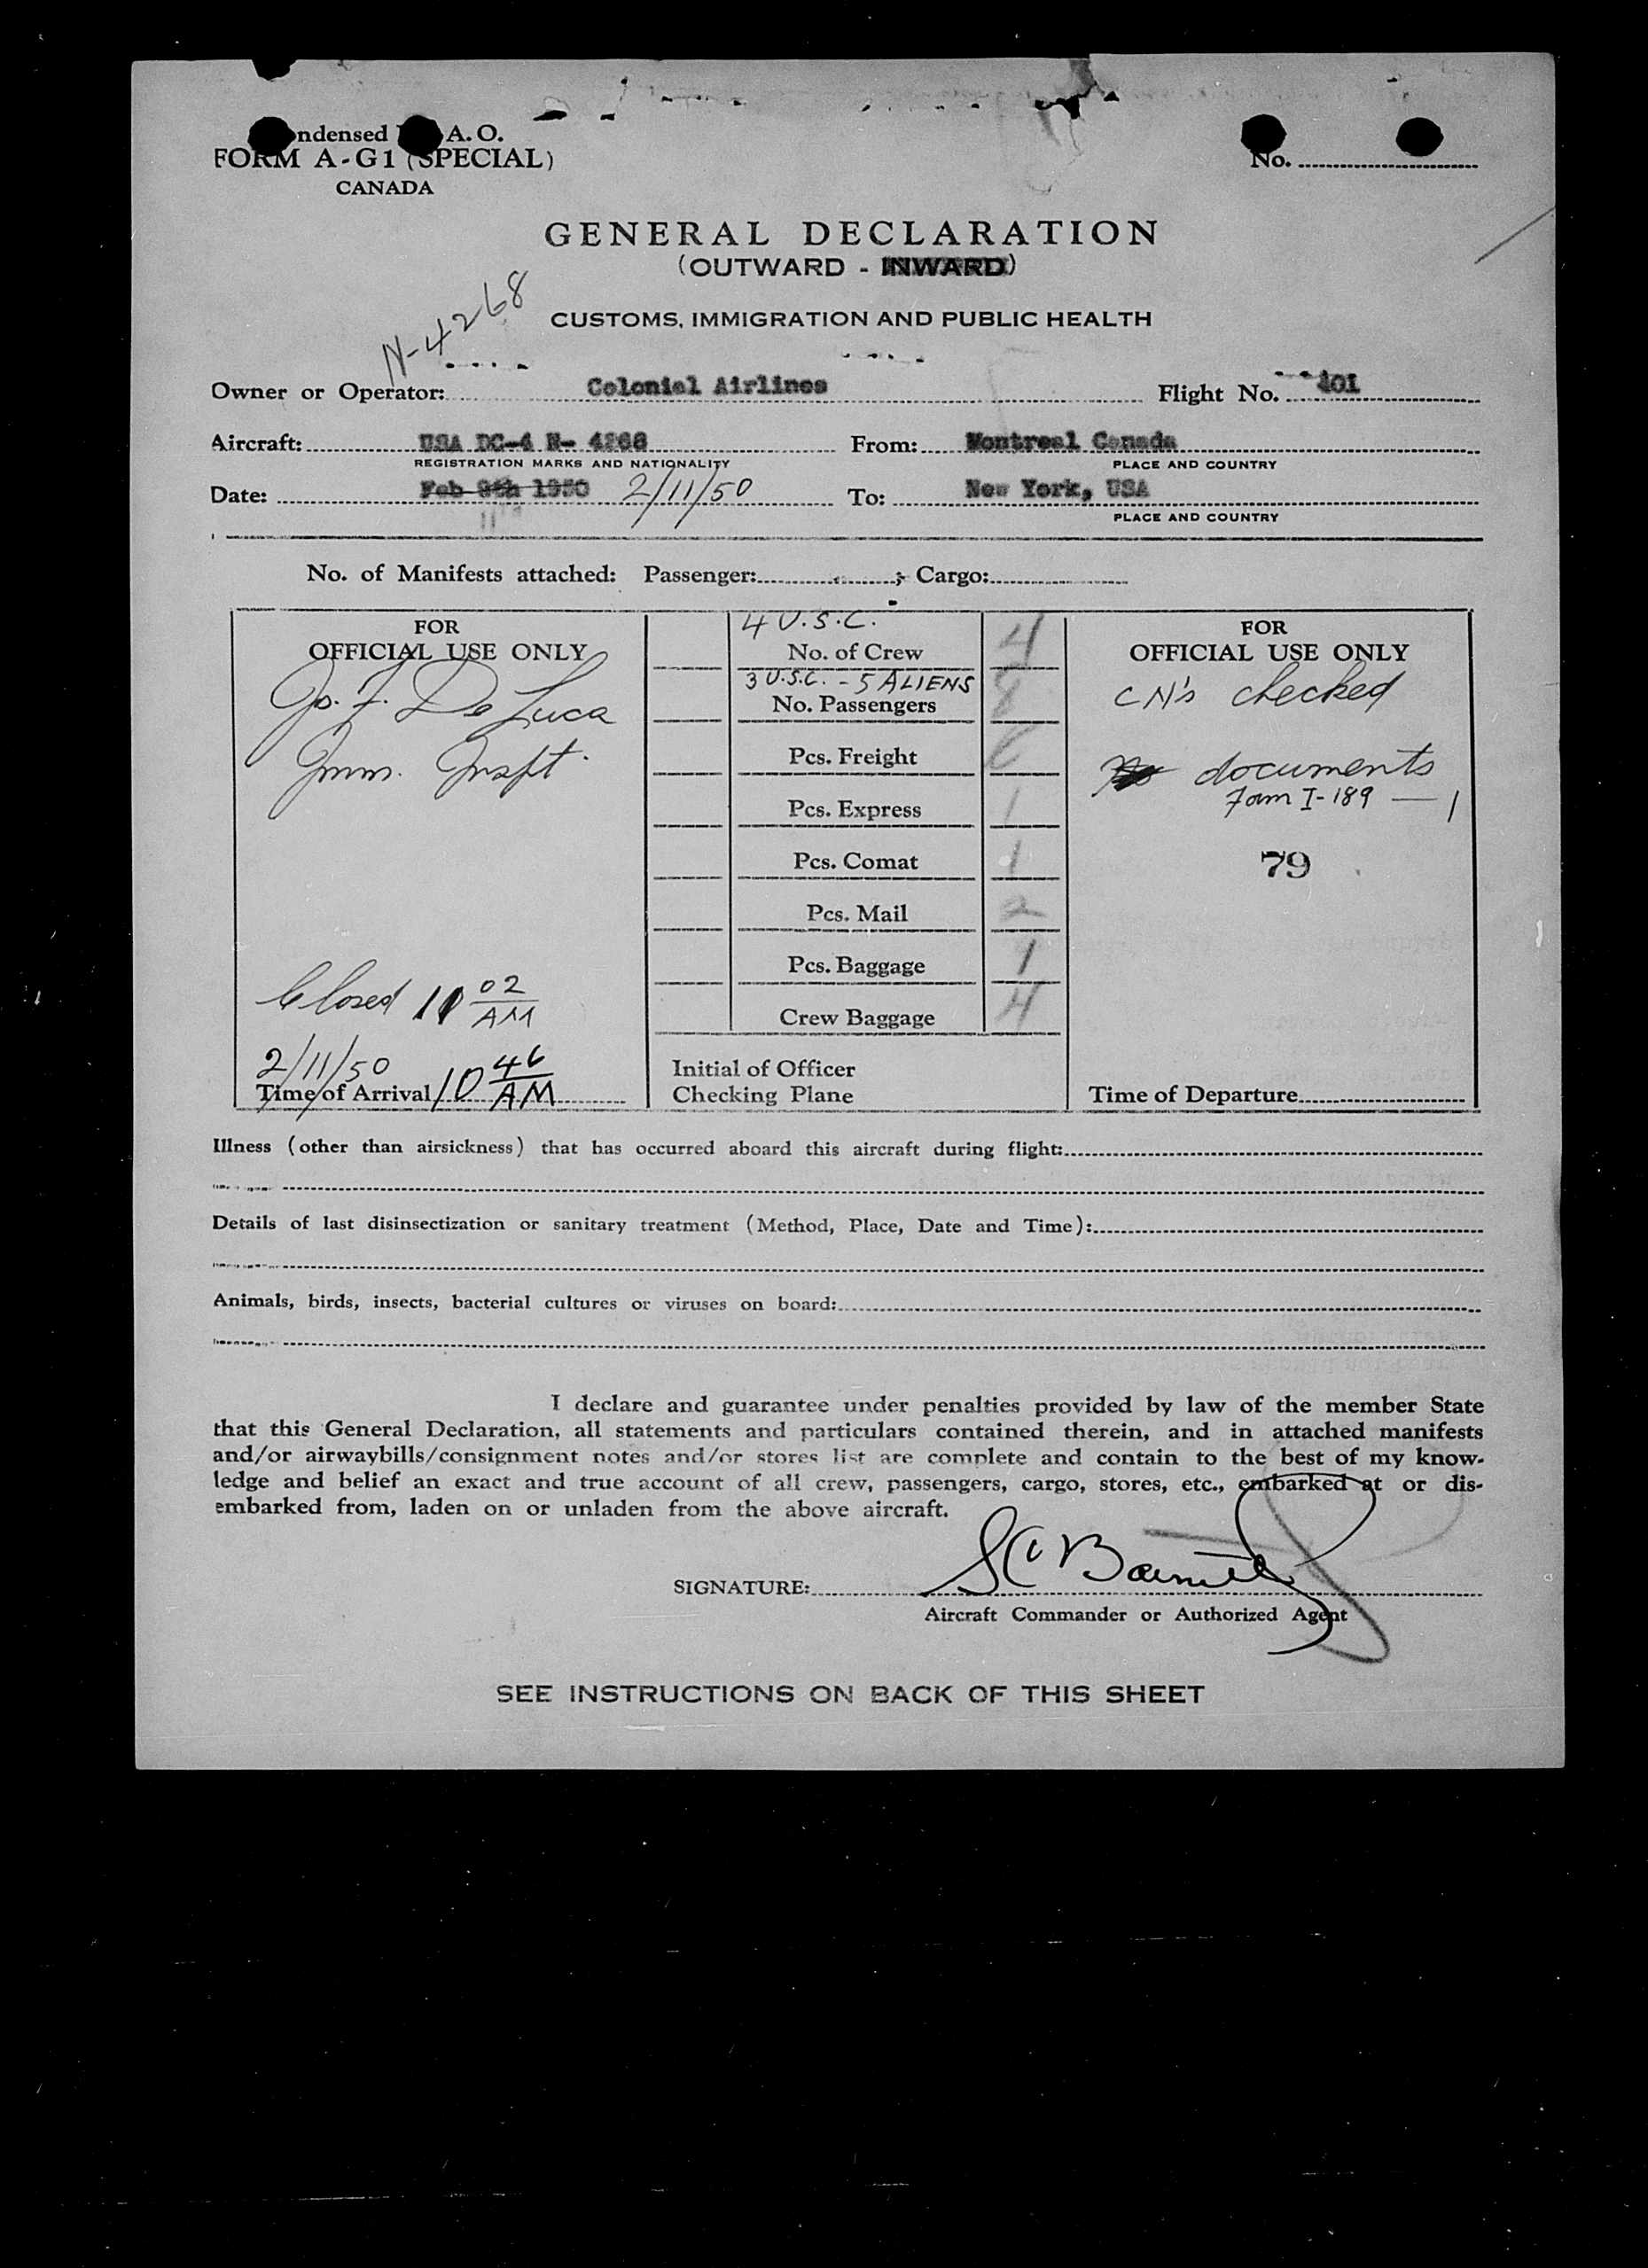 ndensed A. O.
FORM A-G1 (SPECIAL)
CANADA
No.
GENERAL DECLARATION
(OUTWARD - INWARD)
N-4268
CUSTOMS, IMMIGRATION AND PUBLIC HEALTH
Owner or Operator: Colonial Airlines Flight No. 401
Aircraft: USA DC-4 N- 4268 From: Montreal Canada
REGISTRATION MARKS AND NATIONALITY PLACE AND COUNTRY
Date: Feb 9th 1950 2/11/50 To: New York, USA
11
PLACE AND COUNTRY
No. of Manifests attached: Passenger: ; Cargo:
FOR
OFFICIAL USE ONLY
Jo. F. De Luca
Imm. Inspt.
Closed 10 02 AM
2/11/50
Time of Arrival 10 46 AM
4 U.S.C.
No. of Crew 4
3 U.S.C. - 5 ALIENS
No. Passengers 8
Pcs. Freight
Pcs. Express 1
Pcs. Comat 1
Pcs. Mail 2
Pcs. Baggage 1
Crew Baggage 4
Initial of Officer
Checking Plane
FOR
OFFICIAL USE ONLY
CN's checked
documents
Form I-189 — 1
79
Time of Departure
Illness (other than airsickness) that has occurred aboard this aircraft during flight:
Details of last disinsectization or sanitary treatment (Method, Place, Date and Time):
Animals, birds, insects, bacterial cultures or viruses on board:
I declare and guarantee under penalties provided by law of the member State
that this General Declaration, all statements and particulars contained therein, and in attached manifests
and/or airwaybills/consignment notes and/or stores list are complete and contain to the best of my know-
ledge and belief an exact and true account of all crew, passengers, cargo, stores, etc., embarked at or dis-
embarked from, laden on or unladen from the above aircraft.
SIGNATURE:
Aircraft Commander or Authorized Agent
SEE INSTRUCTIONS ON BACK OF THIS SHEET